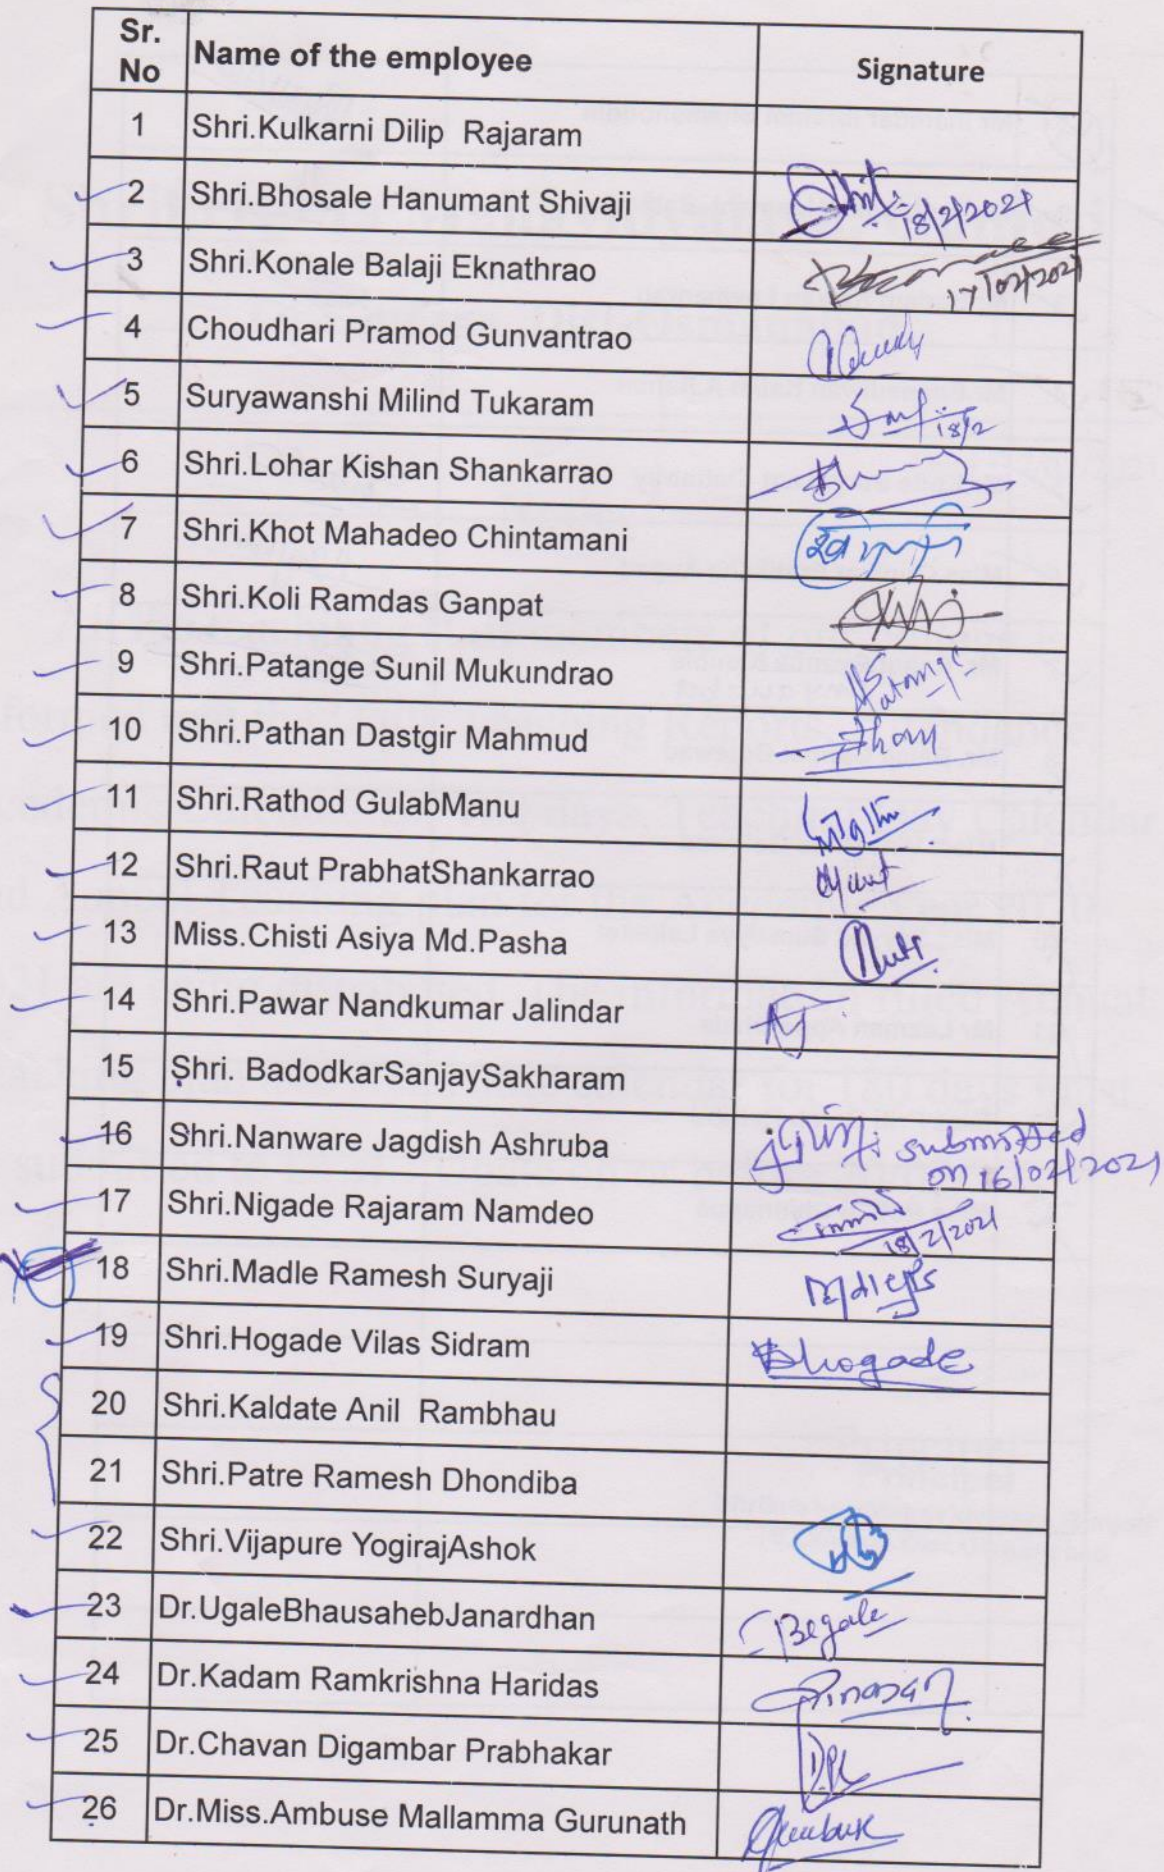 Sr. No Name of the employee Signature
1 Shri.Kulkarni Dilip Rajaram
2 Shri.Bhosale Hanumant Shivaji 18/2/2021
3 Shri.Konale Balaji Eknathrao 17/02/2021
4 Choudhari Pramod Gunvantrao
5 Suryawanshi Milind Tukaram 18/2
6 Shri.Lohar Kishan Shankarrao
7 Shri.Khot Mahadeo Chintamani
8 Shri.Koli Ramdas Ganpat
9 Shri.Patange Sunil Mukundrao Patange
10 Shri.Pathan Dastgir Mahmud
11 Shri.Rathod GulabManu
12 Shri.Raut PrabhatShankarrao
13 Miss.Chisti Asiya Md.Pasha
14 Shri.Pawar Nandkumar Jalindar
15 Shri. BadodkarSanjaySakharam
16 Shri.Nanware Jagdish Ashruba submitted
on 16/02/2021
17 Shri.Nigade Rajaram Namdeo 18/2/2021
18 Shri.Madle Ramesh Suryaji
19 Shri.Hogade Vilas Sidram
20 Shri.Kaldate Anil Rambhau
21 Shri.Patre Ramesh Dhondiba
22 Shri.Vijapure YogirajAshok
23 Dr.UgaleBhausahebJanardhan
24 Dr.Kadam Ramkrishna Haridas
25 Dr.Chavan Digambar Prabhakar
26 Dr.Miss.Ambuse Mallamma Gurunath